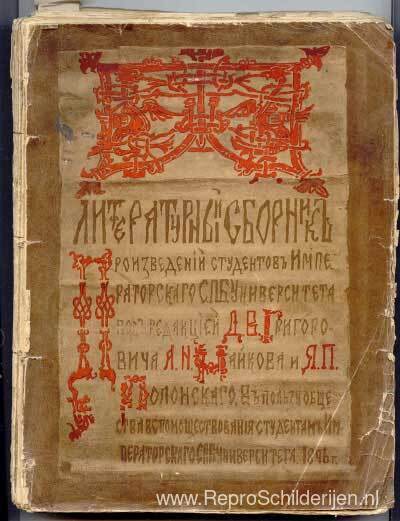 ЛИТЕРАТУРНЫЙ СБОРНИКЪ
ПРОИЗВЕДЕНІЙ СТУДЕНТОВЪ ИМПЕ
РАТОРСКАГО СПБ. УНИВЕРСИТЕТА
ПОДЪ РЕДАКЦІЕЙ Д.В. ГРИГОРО-
ВИЧА А.Н. МАЙКОВА И Я.П.
ПОЛОНСКАГО. ВЪ ПОЛЬЗУ ОБЩЕ
СТВА ВСПОМОЩЕСТВОВАНІЯ СТУДЕНТАМЪ ИМ
ПЕРАТОРСКАГО СПБ УНИВЕРСИТЕТА. 1896 г.
www.ReproSchilderijen.nl